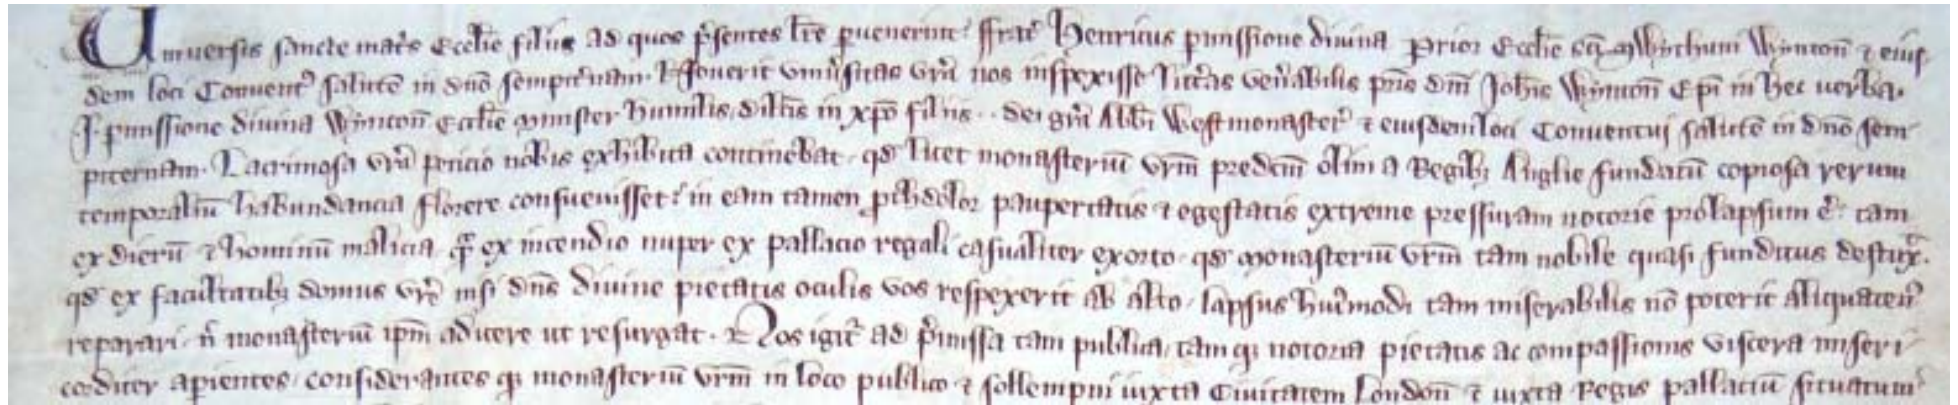 Uniuersis sancte mat's Eccl'ie filiis ad quos p'sentes l're puenerint? ffrat' Henricus pmissione diuina Prior Eccl'ie sc'i Swithuni Wynton' ⁊ eius
dem loci Conuent' salute' in d'no sempit'nam. Nouerit vniu'sitas vr'a nos inspexisse litt'as ven'abilis pr'is d'ni Joh'is Wynton' Ep'i in hec uerba.
J. pmissione diuina Wynton' Eccl'ie minister humilis, dil'tis in xp'o filiis . . dei gr'a Abb'i Westmonaster' ⁊ eiusdem loci Conuentui salute' in d'no sem
piternam. Lacrimosa vr'a peticio nobis exhibita continebat, qd' licet monasteriu' vr'm predc'm olim a Regib; Anglie fundatu' copiosa rerum
temporaliu' habundancia florere consueuisset? in eam tamen, p'thdolor paupertatis ⁊ egestatis extreme pressuram notorie prolapsum e'? tam
ex dieru' ⁊ hominu' malicia, q' ex incendio nuper ex pallacio regali casualiter exorto, qd' monasteriu' vr'm tam nobile quasi funditus destrux'.
qd' ex facultatib; domus vr'e nisi d'ns diuine pietatis oculis vos respexerit ab alto, lapsus hui'modi tam miserabilis no' poterit aliquaten'
reparari, n' monasteriu' ip'm adicere ut resurgat. Nos igit' ad p'missa tam publica, tam q; notoria pietatis ac compassionis viscera miseri
corditer apientes, considerantes q; monasteriu' vr'm in loco publico ⁊ sollempni iuxta Ciuitatem London' ⁊ iuxta Regis pallaciu' situatum'